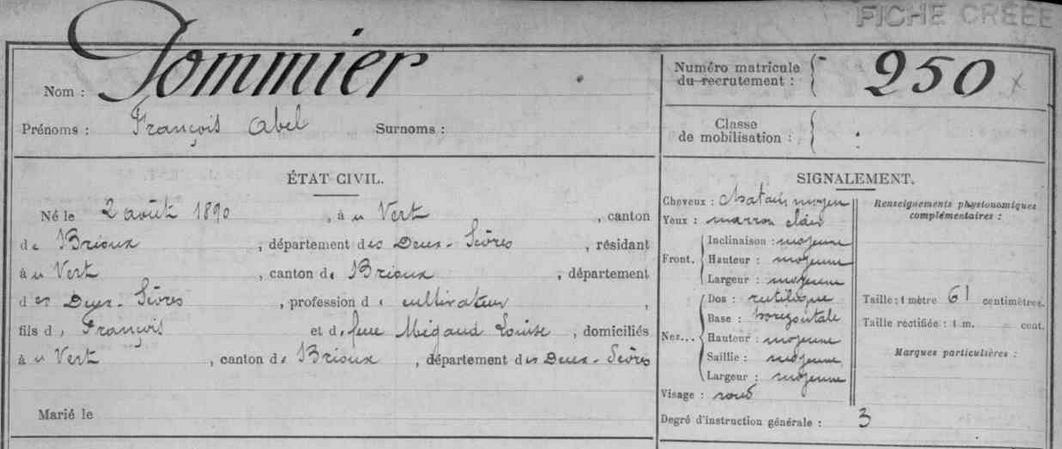 FICHE CRÉÉE
Nom : Pommier
Prénoms : François Abel Surnoms :
Numéro matricule du recrutement : 250
Classe de mobilisation :
ÉTAT CIVIL.
Né le 2 août 1890, à Vert, canton
de Brioux, département des Deux-Sèvres, résidant
à Vert, canton de Brioux, département
des Deux-Sèvres, profession de cultivateur,
fils de François et de feue Mégaud Louise, domiciliés
à Vert, canton de Brioux, département des Deux-Sèvres
Marié le
SIGNALEMENT.
Cheveux : chatain moyen
Yeux : marron clair
Front. Inclinaison : moyenne
Hauteur : moyenne
Largeur : moyenne
Nez... Dos : rectiligne
Base : horizontale
Hauteur : moyenne
Saillie : moyenne
Largeur : moyenne
Visage : rond
Renseignements physionomiques
complémentaires :
Taille : 1 mètre 61 centimètres.
Taille rectifiée : 1 m. cent.
Marques particulières :
Degré d'instruction générale : 3